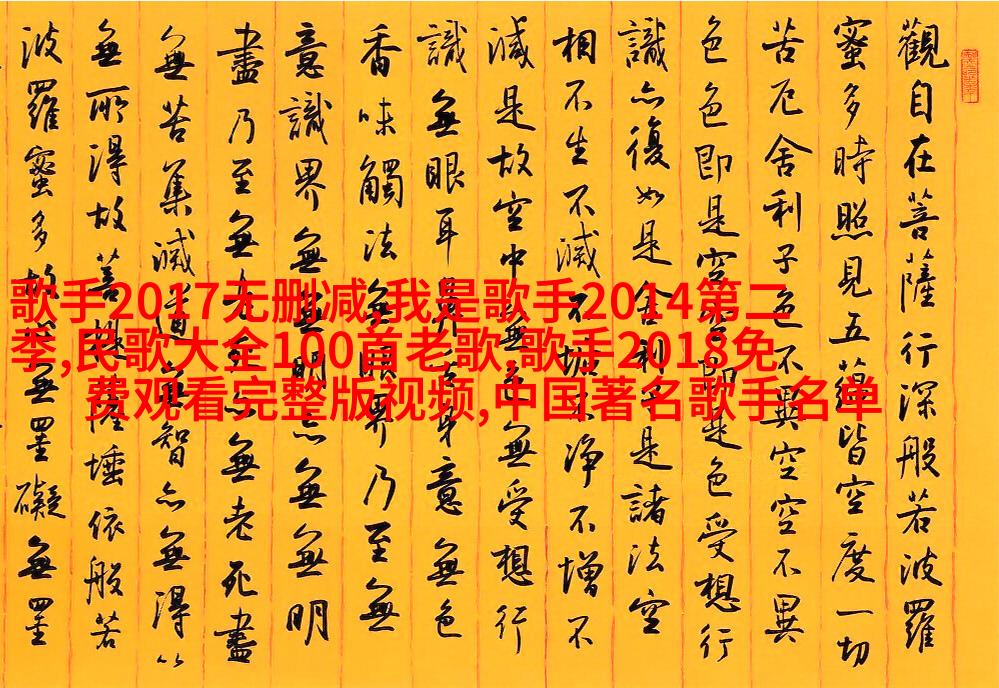 歌手2017无删减,我是歌手2014第二
季,民歌大全100首老歌,歌手2018免
费观看完整版视频,中国著名歌手名单
觀自在菩薩行深般若波羅
蜜多時照見五蘊皆空度一切
苦厄舍利子色不異空空不異
色色即是空空即是色受想行
識亦復如是舍利子是諸法空
相不生不滅不垢不淨不增不
減是故空中無色無受想行
識無眼耳鼻舌身意無色
香味觸法無眼界乃至無
意識界無無明亦無無明
盡乃至無老死亦無老死盡
無苦集滅道無智亦無得以
無所得故菩提薩埵依般若
波羅蜜多故心無罣礙無罣